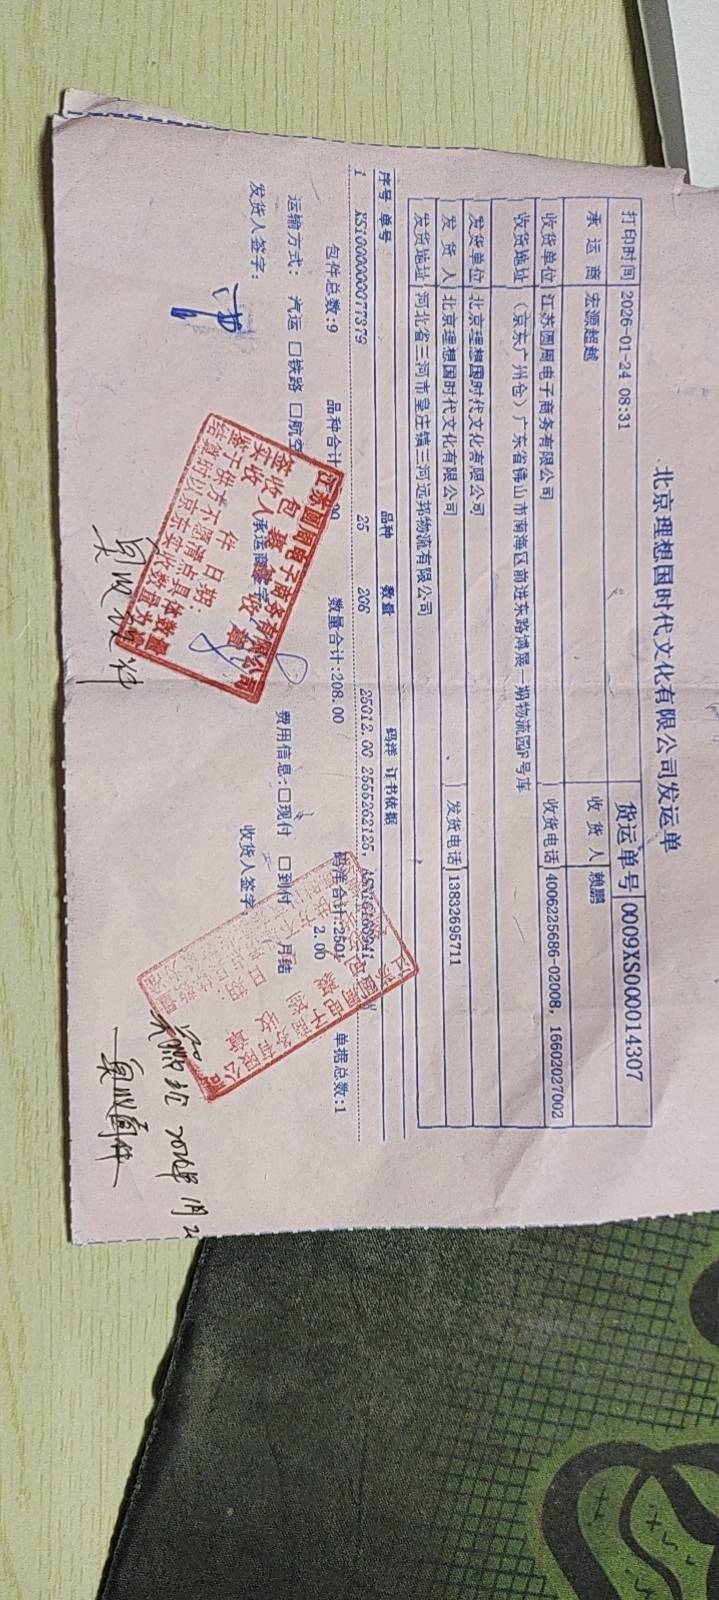 北京理想国时代文化有限公司发运单
货运单号 0009XS000014307
打印时间 2026-01-24 08:31
承运商 宏源超越
收货人 赖鹏
收货单位 江苏圆周电子商务有限公司
收货电话 4006225686-02008, 16602027002
收货地址 (京东广州仓)广东省佛山市南海区前进东路博展一期物流园F号库
发货单位 北京理想国时代文化有限公司
发货人 北京理想国时代文化有限公司
发货电话 13832695711
发货地址 河北省三河市皇庄镇三河远邦物流有限公司
序号 单号 品种 数量 码洋 订书依据
1 XS1000000077379 25 208 25012.00 2555262125,
包件总数:9 品种合计 数量合计:208.00 码洋合计:2501
2.00
单据总数:1
运输方式: 汽运 □铁路 □航空 费用信息:□现付 □到付 月结
发货人签字: 承运商签字 收货人签字:
江苏圆周电子商务有限公司
包裹收货章
签收人
实收 件 日期:
鉴于供方不愿清点具体数量
结算时以京东实收数值为准
实收 件
2026年1月2
实收 件